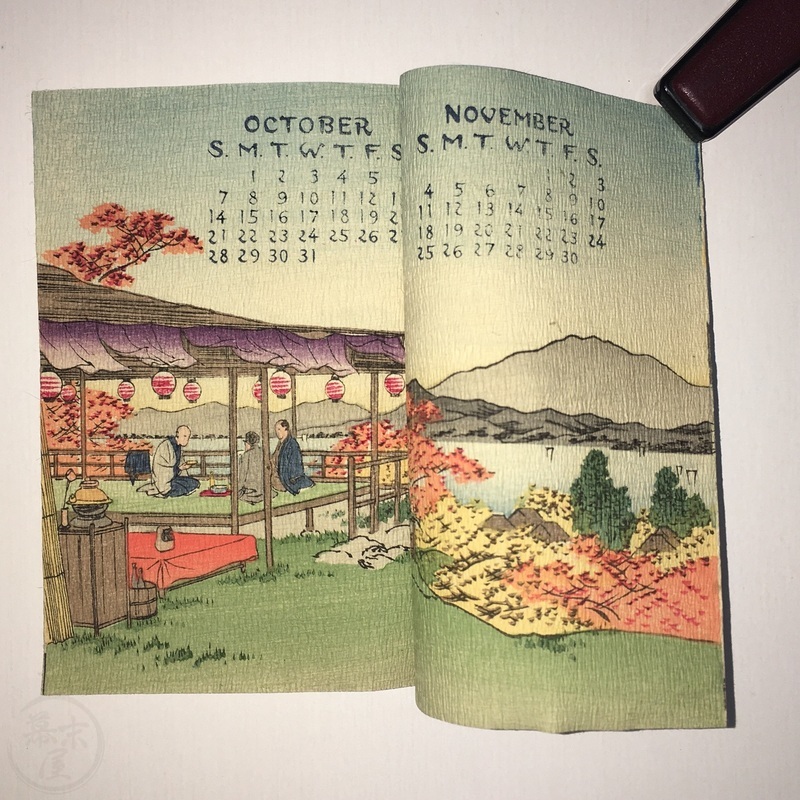 OCTOBER
S. M. T. W. T. F. S
1 2 3 4 5
7 8 9 10 11 12 1
14 15 16 17 18 19 2
21 22 23 24 25 26 2
28 29 30 31
NOVEMBER
S. M. T. W. T. F. S.
1 2 3
4 5 6 7 8 9 10
11 12 13 14 15 16 17
18 19 20 21 22 23 24
25 26 27 28 29 30
幕末屋